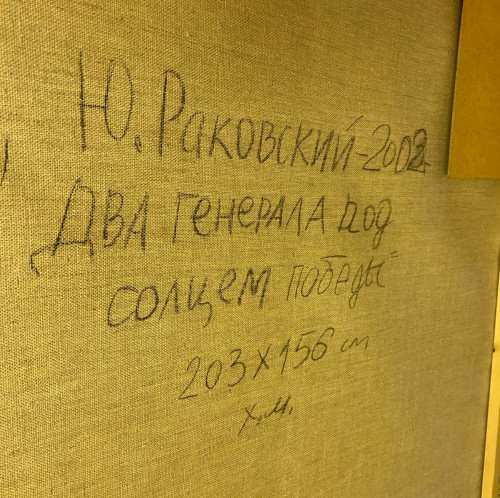 Ю. Раковский-2002
Два генерала под
солцем победы"
203 x 156 см
х.м.